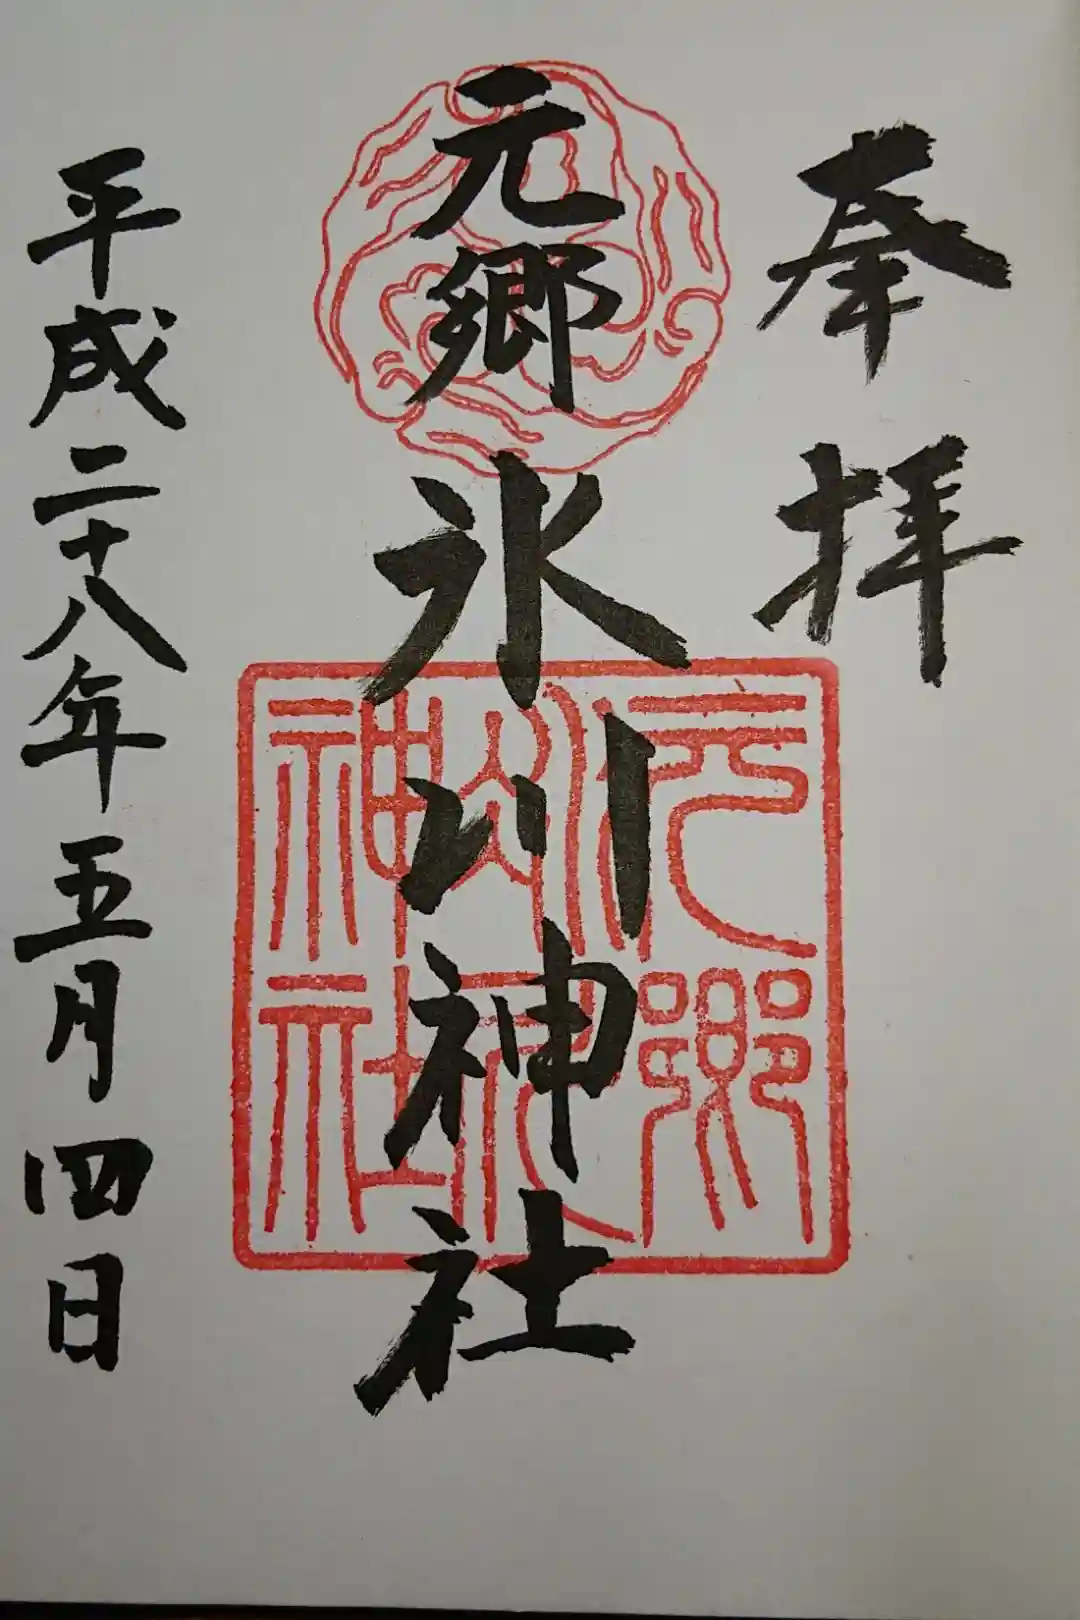 奉拝
元郷氷川神社
平成二十八年五月四日
元郷
氷川
神社